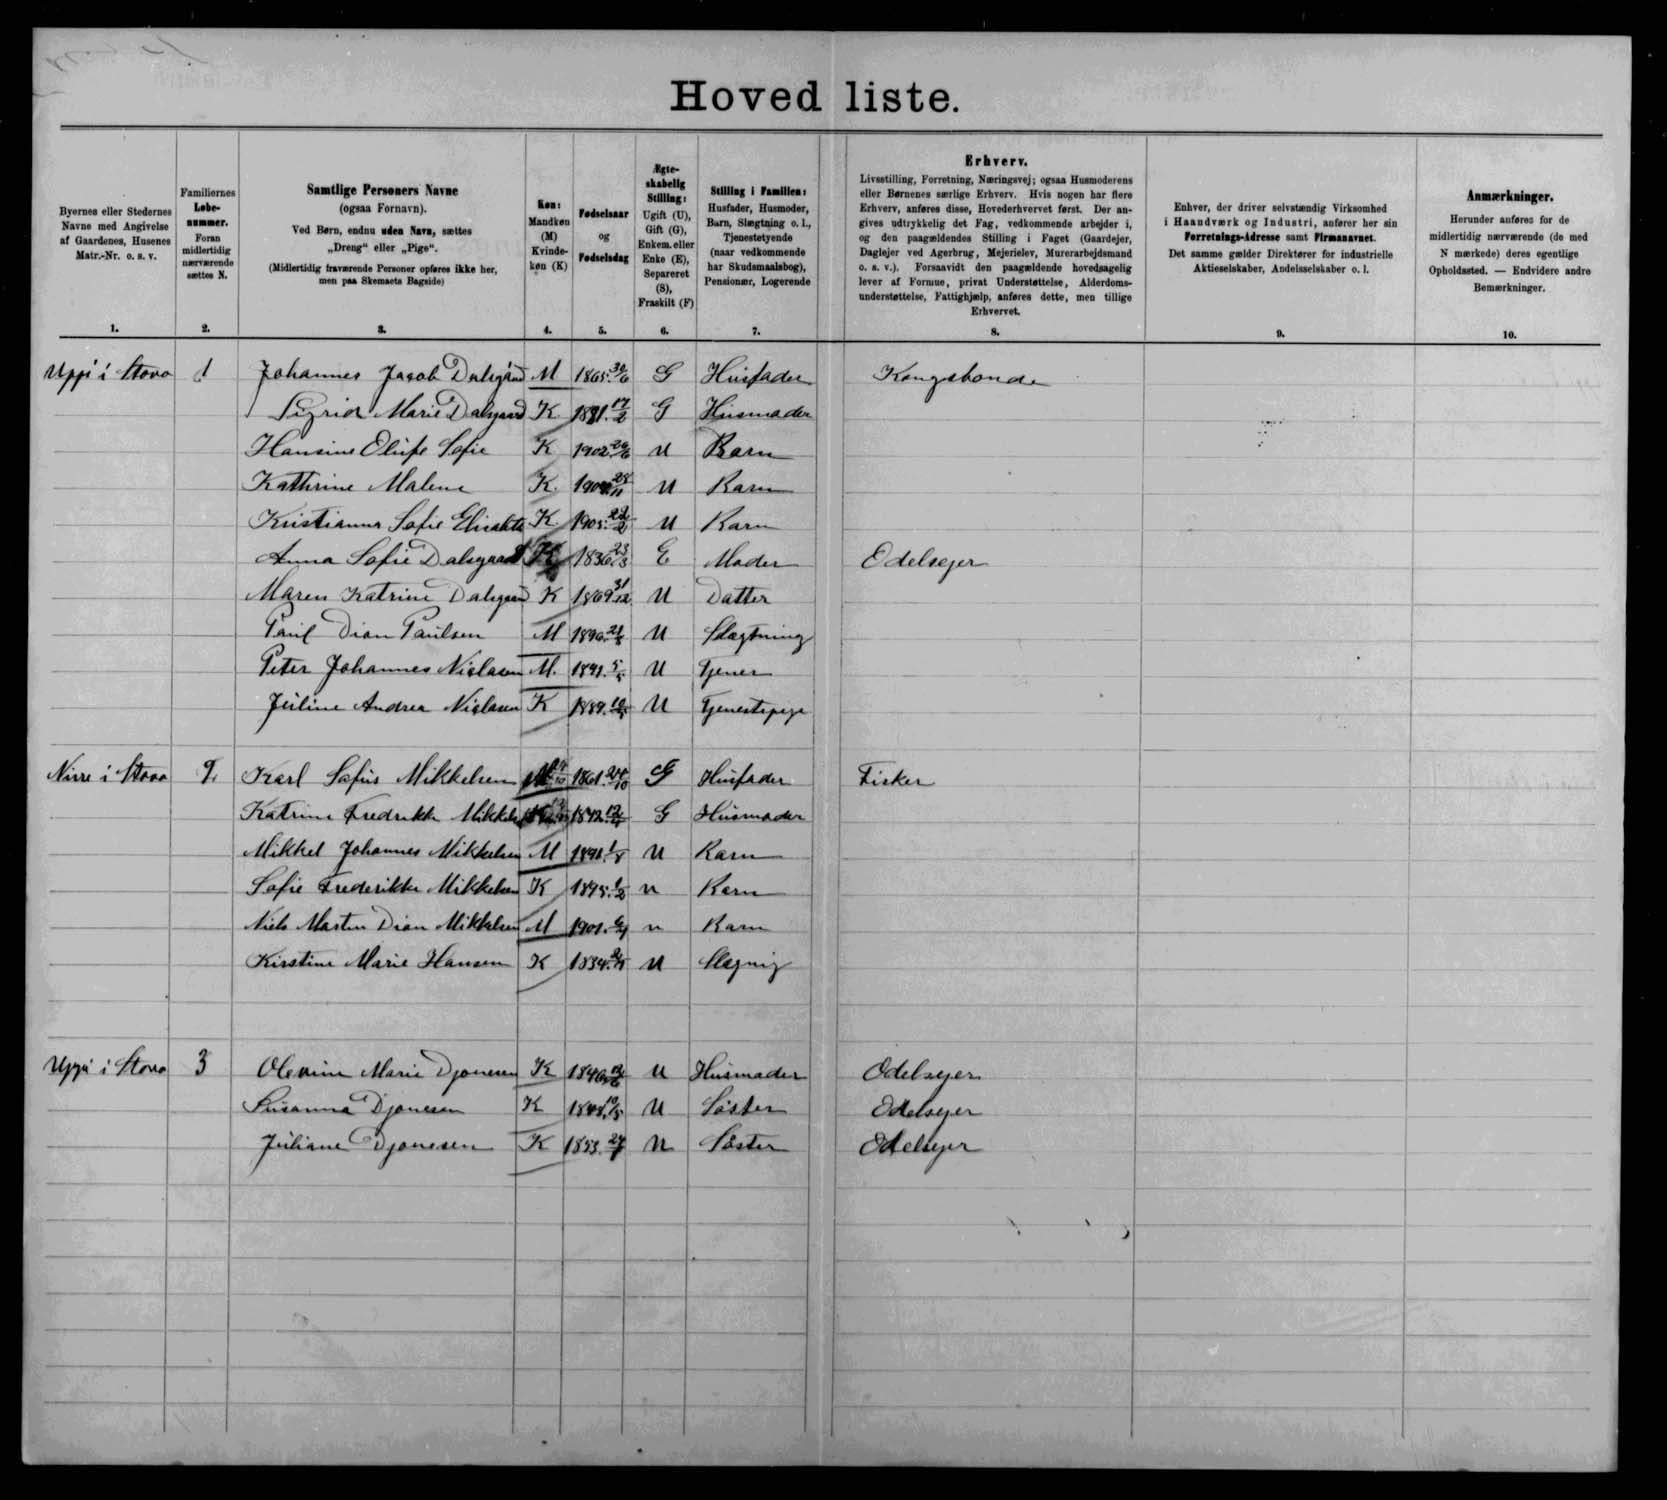 Hoved liste.
Byernes eller Stedernes
Navne med Angivelse
af Gaardenes, Husenes
Matr.-Nr. o. s. v.
1.
Familiernes
Løbe-
nummer.
Foran
midlertidig
nærværende
sættes N.
2.
Samtlige Personers Navne
(ogsaa Fornavn).
Ved Børn, endnu uden Navn, sættes
„Dreng“ eller „Pige“.
(Midlertidig fraværende Personer opføres ikke her,
men paa Skemaets Bagside)
3.
Køn:
Mandkøn
(M)
Kvinde-
køn (K)
4.
Fødselsaar
og
Fødselsdag
5.
Ægte-
skabelig
Stilling:
Ugift (U),
Gift (G),
Enkem. eller
Enke (E),
Separeret
(S),
Fraskilt (F)
6.
Stilling i Familien:
Husfader, Husmoder,
Barn, Slægtning o. l.,
Tjenestetyende
(naar vedkommende
har Skudsmaalsbog),
Pensionær, Logerende
7.
Erhverv.
Livsstilling, Forretning, Næringsvej; ogsaa Husmoderens
eller Børnenes særlige Erhverv. Hvis nogen har flere
Erhverv, anføres disse, Hovederhvervet først. Der an-
gives udtrykkelig det Fag, vedkommende arbejder i,
og den paagældendes Stilling i Faget (Gaardejer,
Daglejer ved Agerbrug, Mejerielev, Murerarbejdsmand
o. s. v.). Forsaavidt den paagældende hovedsagelig
lever af Formue, privat Understøttelse, Alderdoms-
understøttelse, Fattighjælp, anføres dette, men tillige
Erhvervet.
8.
Enhver, der driver selvstændig Virksomhed
i Haandværk og Industri, anfører her sin
Forretnings-Adresse samt Firmanavnet.
Det samme gælder Direktører for industrielle
Aktieselskaber, Andelsselskaber o. l.
9.
Anmærkninger.
Herunder anføres for de
midlertidig nærværende (de med
N mærkede) deres egentlige
Opholdssted. — Endvidere andre
Bemærkninger.
10.
Uppi i Stova 1 Johannes Jacob Dalsgaard M 1865 30/6 G Husfader Kongsbonde
Sigrid Marie Dalsgaard K 1881 17/2 G Husmoder
Hansine Olufe Sofie K 1902 U Barn
Kathrine Malene K. U Barn
Kristianna Sofie K 1905 U Barn
Anna Sofie Dalsgaard K 1836 23/3 E Moder Odelsejer
Maren Katrine Dalsgaard K 1869 31/12 U Datter
Paul Dion Paulsen M 1896 U Slægtning
Peter Johannes Niclasen M. 1891 U Tjener
Juline Andrea Niclasen K 1889 U Tjenestepige
Nirre i Stova 2. Karl Sofus Mikkelsen 1861 24/10 G Husfader Fisker
Katrine Fredrikke G Husmoder
Mikkel Johannes Mikkelsen M 1891 U Barn
Sofie Frederikke Mikkelsen K 1895 1/2 U Barn
Niels Martin Dion Mikkelsen M 1901 U Barn
Kirstine Marie Hansen K 1834 U
Uppi i Stova 3 Olevine Marie Djonesen K 1846 U Husmoder Odelsejer
Susanna Djonesen K 1848 U Søster Odelsejer
Juliane Djonesen K 1853 U Søster Odelsejer